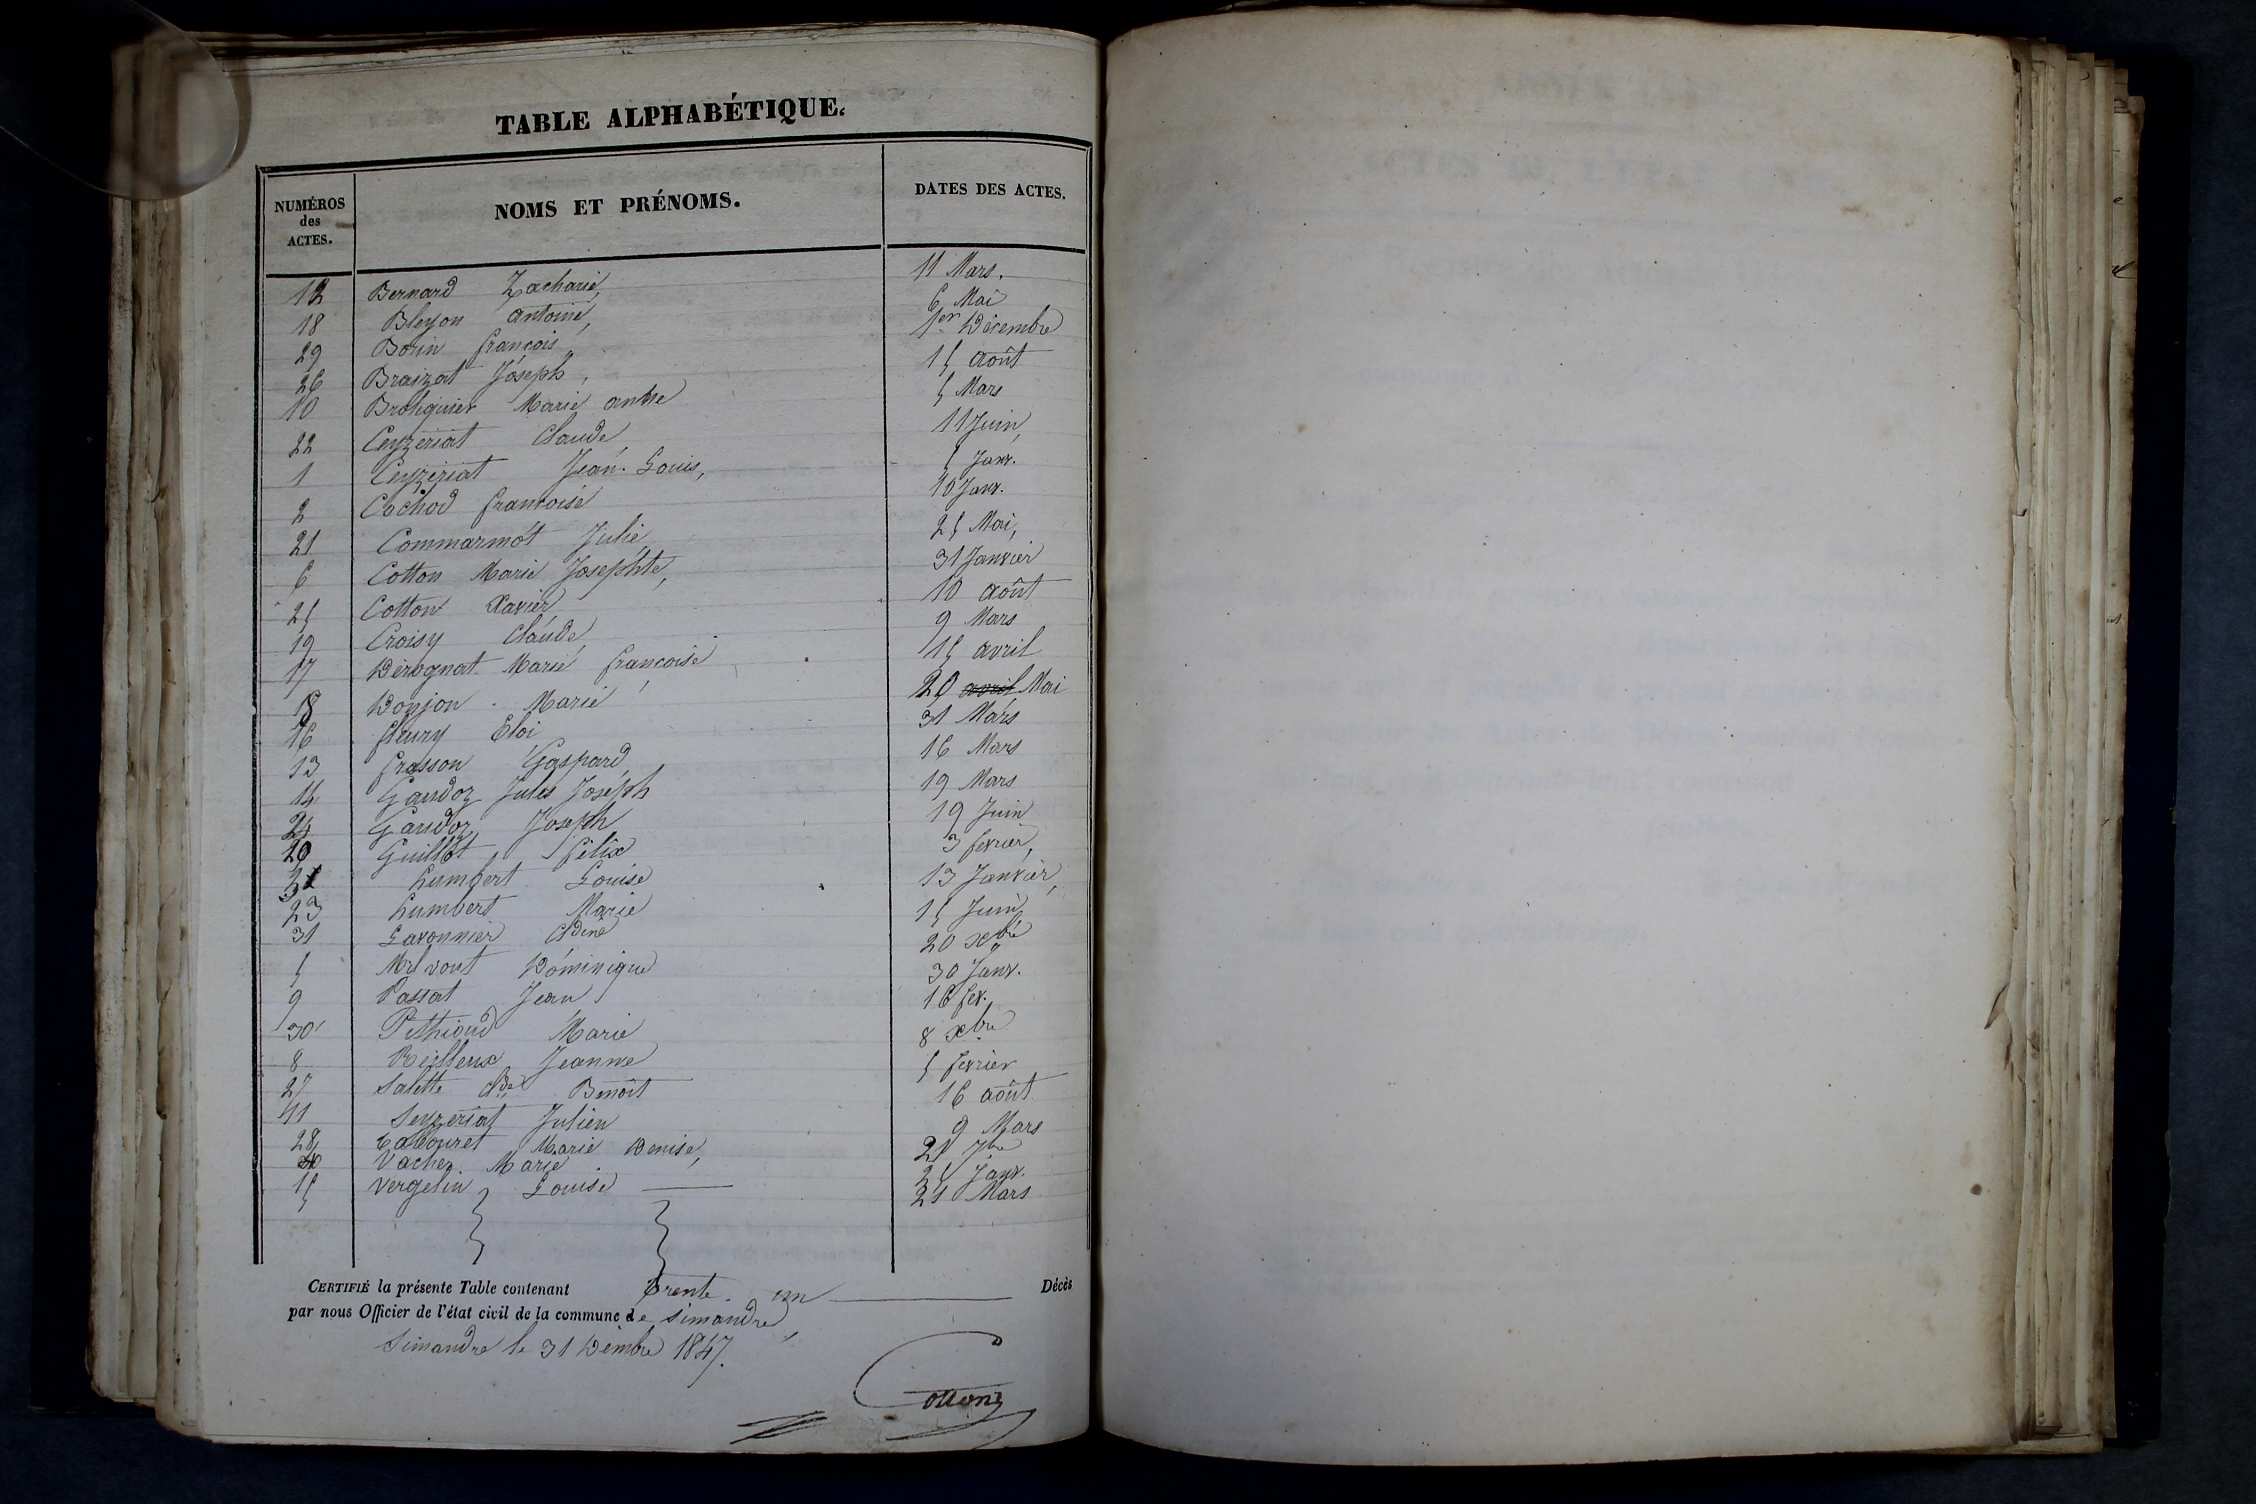 TABLE ALPHABÉTIQUE.
NUMÉROS des ACTES. NOMS ET PRÉNOMS. DATES DES ACTES.
12 Bernard Zacharie, 11 Mars.
18 Bleyon antoine, 6 Mai
29 Borin françois, 1er Décembre
26 Braizat Joseph, 15 août
10 Brohquier Marie anthe 5 Mars
22 Ceyzériat Claude 11 Juin,
1 Ceyzériat Jean-Louis, 5 Janv.
2 Cochod françoise 10 Janv.
21 Commarmot Julie 25 Mai,
6 Cotton Marie Josephte, 31 Janvier
25 Cotton Xavier 10 août
19 Croisy Claude, 9 Mars
17 Dérognat Marie françoise 15 avril
Donjon Marie 20 avril Mai
16 fleury Eloi 31 Mars
13 frasson Gaspard 16 Mars
14 Gaudoz Jules Joseph 19 Mars
24 Gaudoz Joseph 19 Juin
20 Guillot félix 3 fevrier,
humbert Louise 13 Janvier,
23 humbert Marie 15 Juin
31 Lavonnier Cldine 20 xbre
5 Malvout Dominique 30 Janv.
9 Passat Jean 16 fev.
30 Pethioud Marie 8 xbre
8 Reilleux Jeanne 5 fevrier
27 Salette Cde Benoit 16 août
11 Seyzeriat Julien 9 Mars
28 Tabouret Marie Denise, 21 7bre
Vacher Marie 25 Janv.
15 Vergelin Louise 21 Mars
CERTIFIÉ la présente Table contenant Trente-un Décès
par nous Officier de l'état civil de la commune de Simandre,
Simandre le 31 Décembre 1847.
Cotton